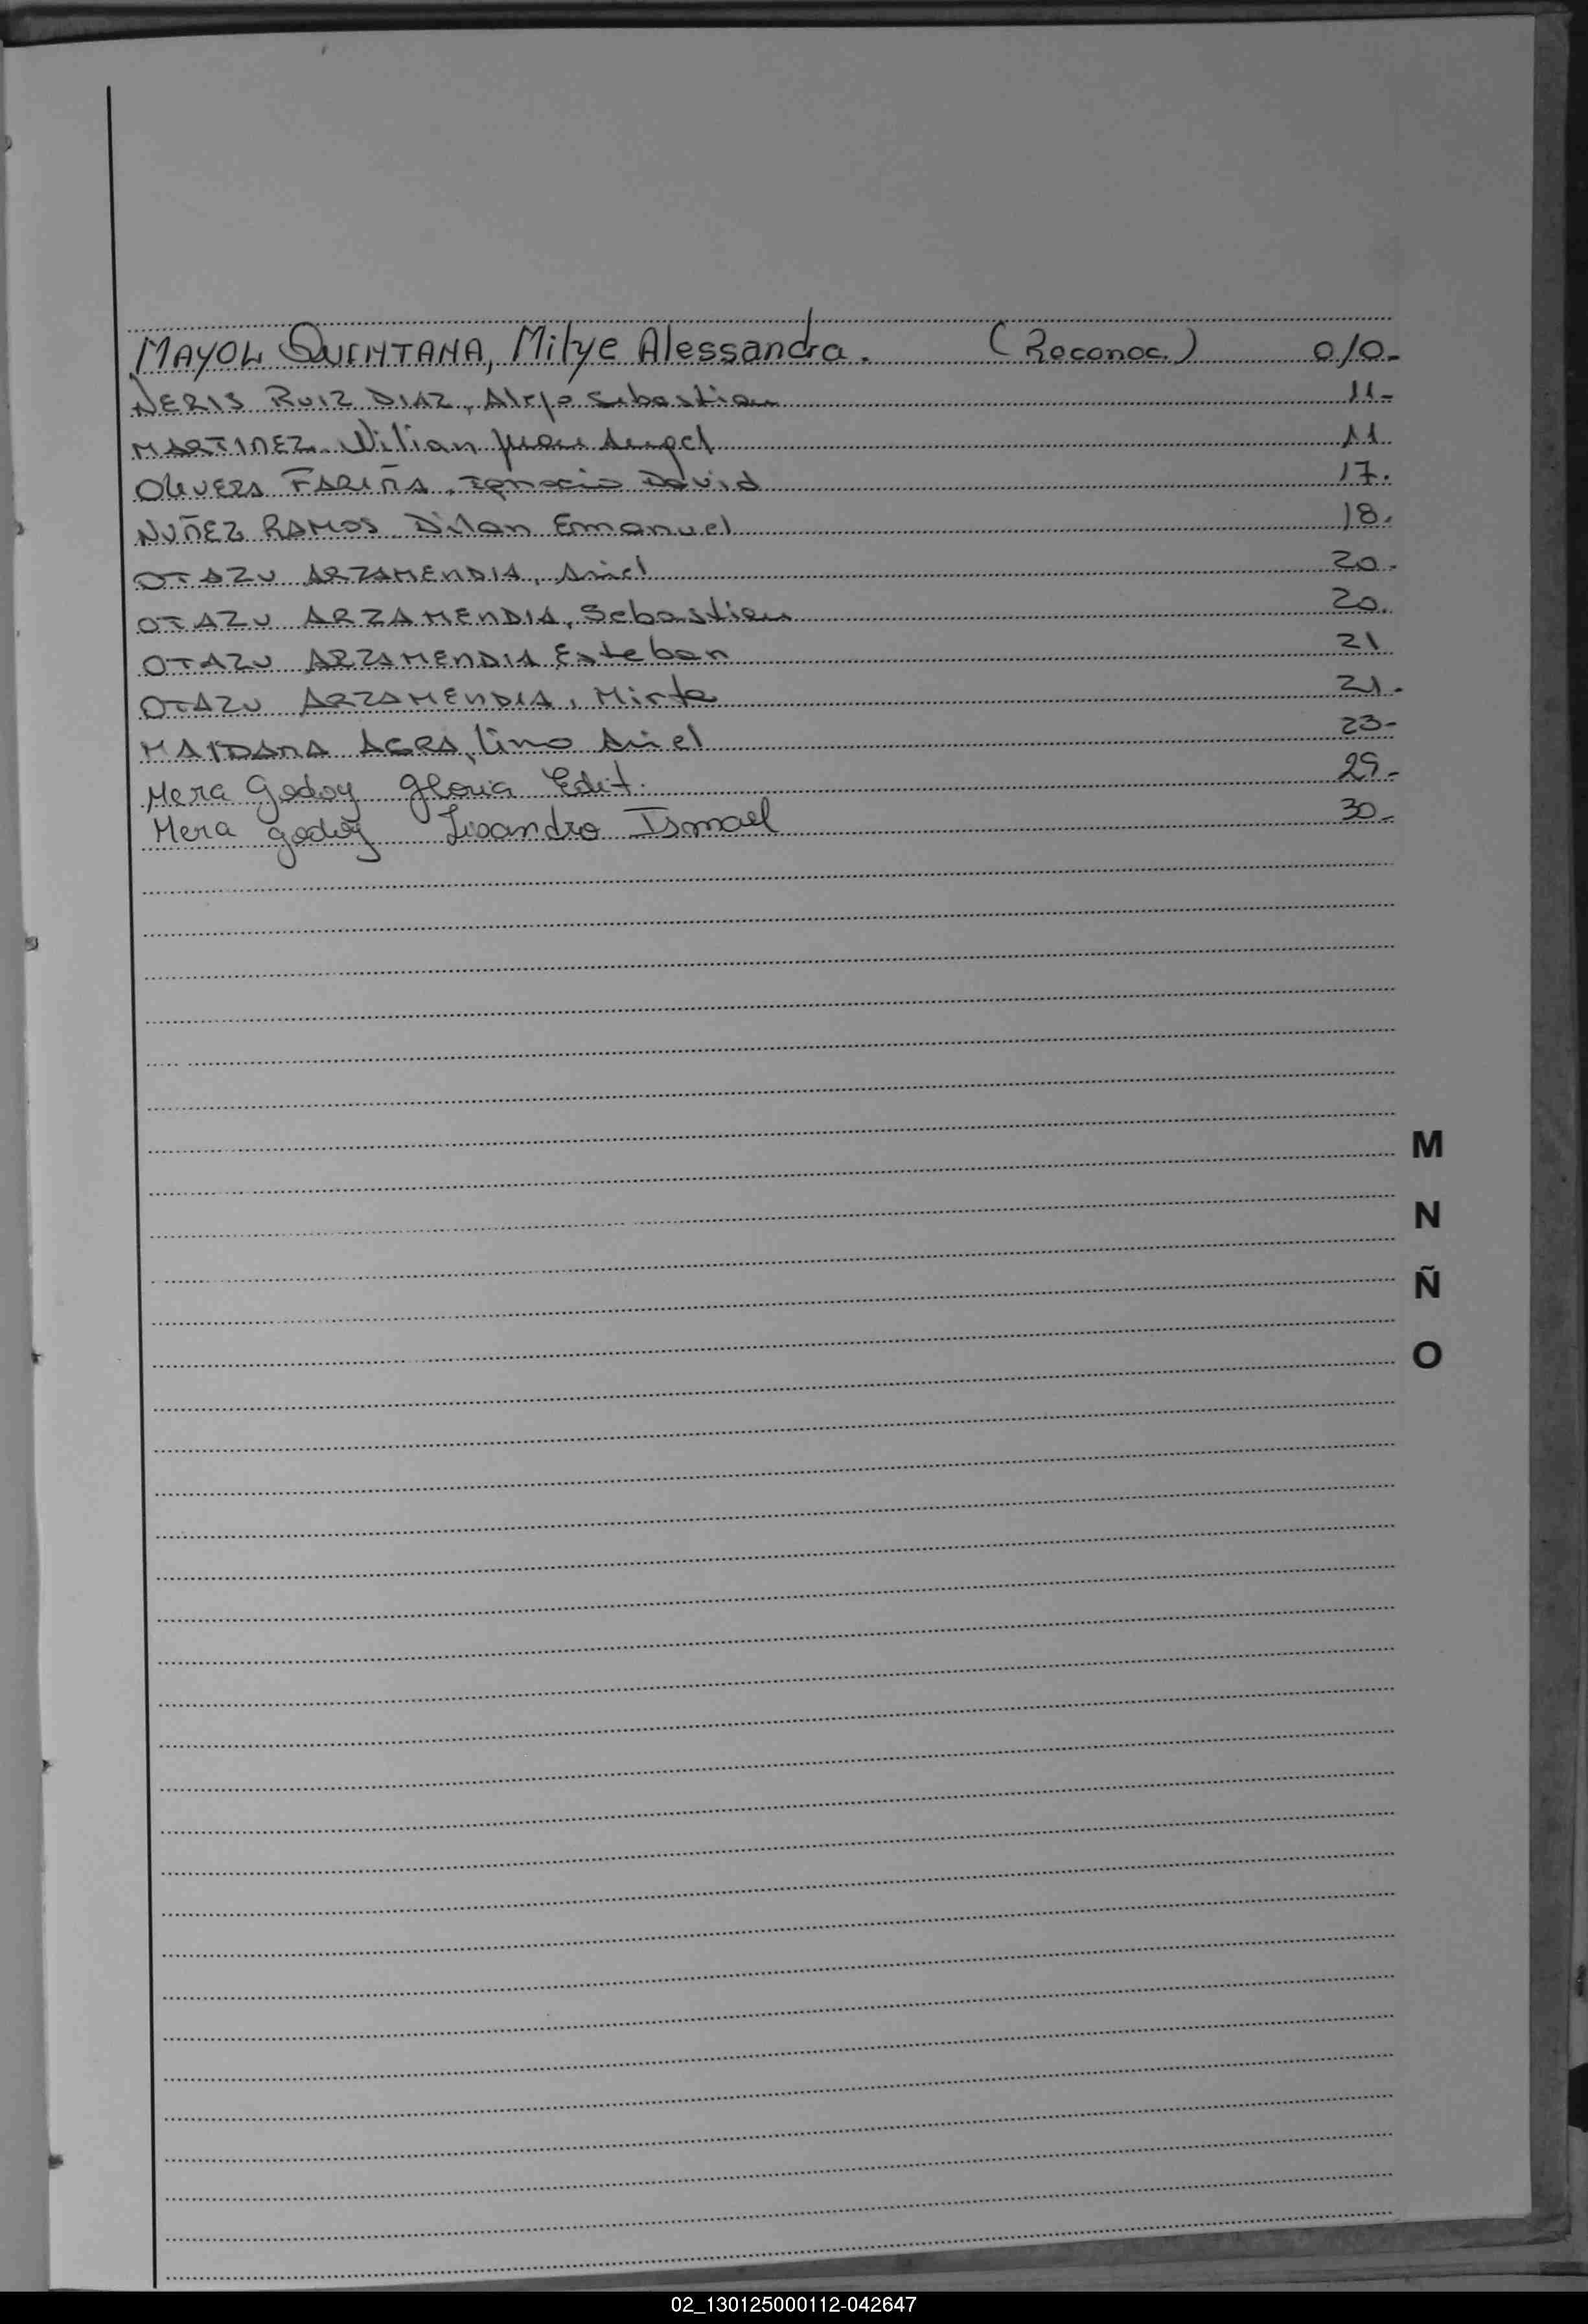 MAYOL QUINTANA, Milye Alessandra. (Reconoc.) 0/0.
NERIS RUIZ DIAZ, Alejo Sebastian 11-
MARTINEZ, Wilian Juan Angel 11
OLIVERA FARIÑA, Ignacio David 17.
NUÑEZ RAMOS Dilan Emanuel 18.
OTAZU ARZAMENDIA, Ariel 20.
OTAZU ARZAMENDIA, Sebastian 20.
OTAZU ARZAMENDIA Esteban 21
OTAZU ARZAMENDIA, Mirta 21.
MAIDANA AGRA, Lino Ariel 23-
Mera Godoy Gloria Edit. 29-
Mera godoy Lisandro Ismael 30-
M
N
Ñ
O
02_130125000112-042647